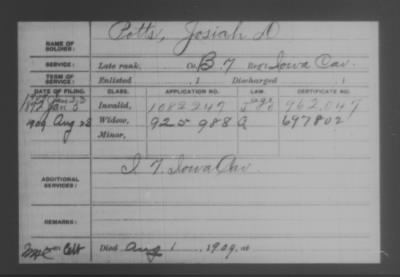 Potts, Josiah D
NAME OF
SOLDIER:
SERVICE: Late rank, Co. B. 7 Reg't Iowa Cav.
TERM OF
SERVICE: Enlisted , 1 Discharged , 1
DATE OF FILING. CLASS. APPLICATION NO. LAW. CERTIFICATE NO.
Invalid, 1082247 962,047
1909 Aug 28 Widow, 925 988 A 697802
Minor,
ADDITIONAL
SERVICES: I 7. Iowa Cav.
REMARKS:
Died Aug 1, 1909, at